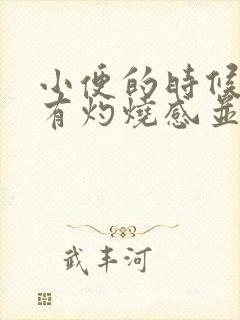 小便的時候
有灼燒感並
武丰河